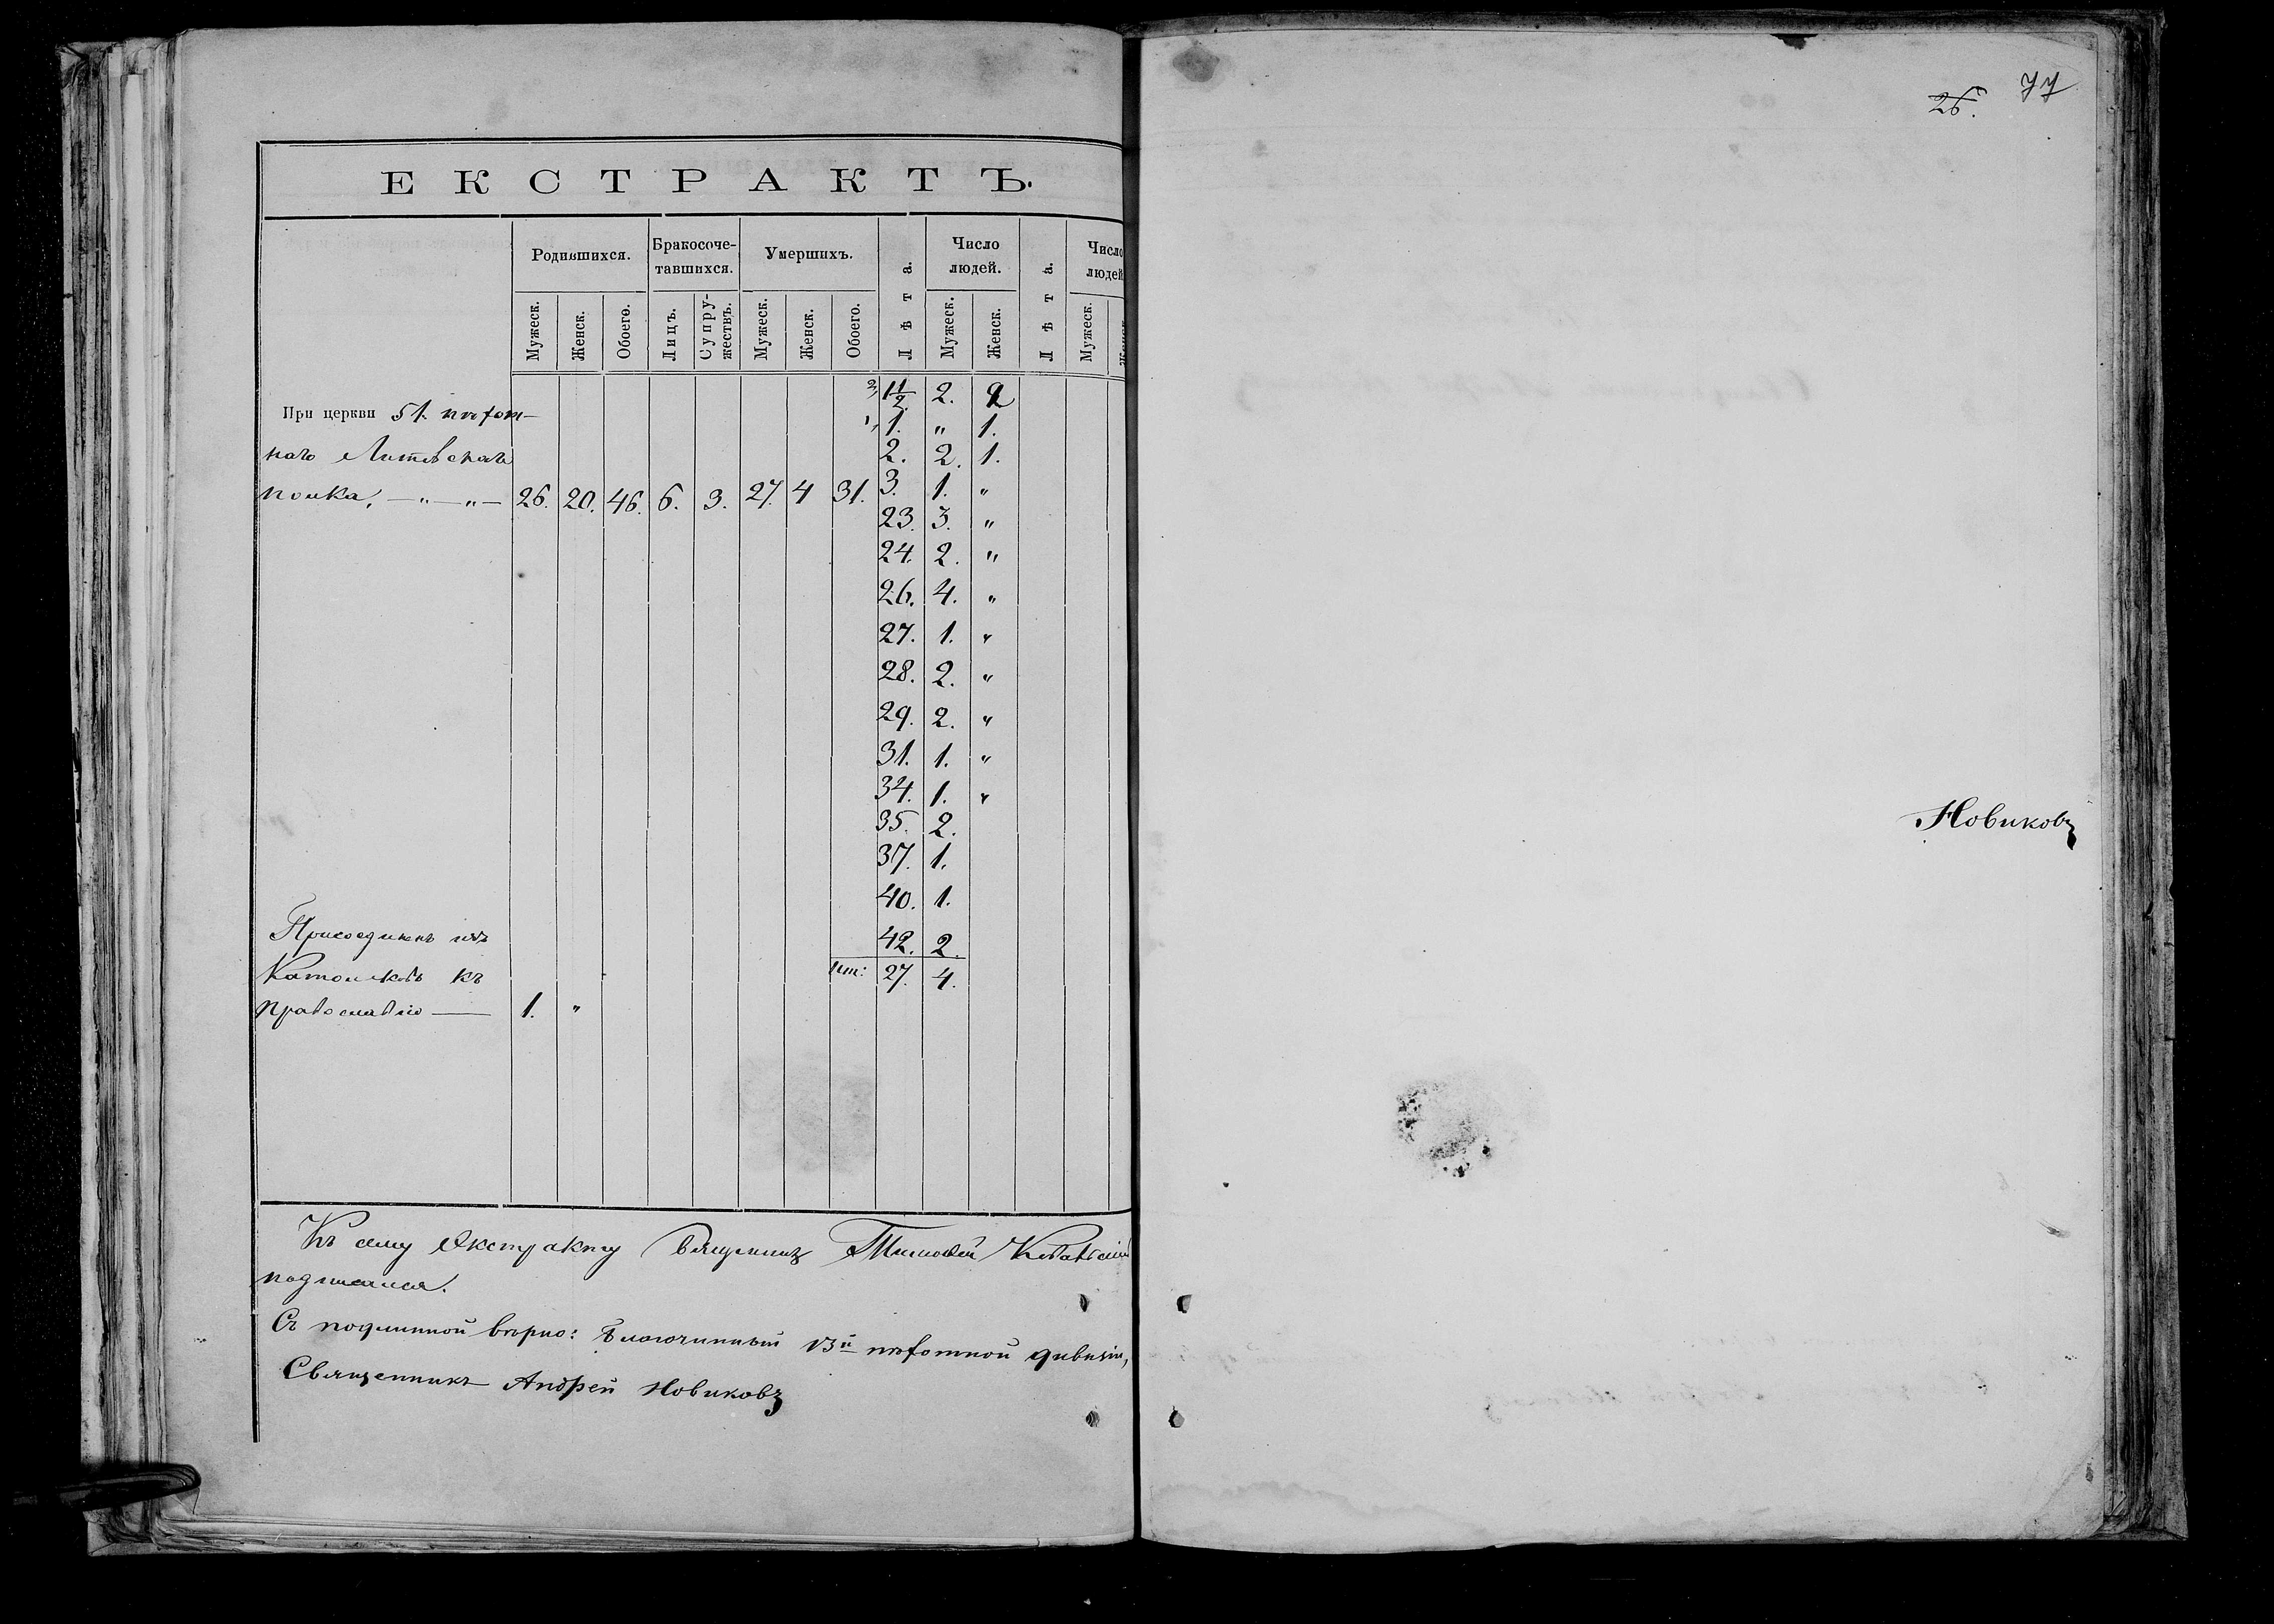 ЕКСТРАКТЪ.
Родившихся. Бракосоче- Умершихъ. Лѣта. Число Лѣта. Число
тавшихся. людей. людей
Мужеск. Женск. Обоего. Лицъ. Супру- Мужеск. Женск. Обоего. Мужеск. Женск. Мужеск. Женск
жествъ.
1/2 2. 2
При церкви 51. пѣхот-
1. " 1.
наго Литовскаго
2. 2. 1.
3. 1. "
полка, —"—"— 26. 20. 46. 6. 3. 27. 4 31.
23. 3. "
24. 2. "
26. 4. "
27. 1. "
28. 2. "
29. 2. "
31. 1. "
34. 1. "
35. 2.
37. 1.
40. 1.
Присоединенъ изъ
42. 2.
Католиковъ къ
ит: 27. 4.
православію — 1. "
Къ сему Екстракту Священникъ Тимофей
подписался.
Съ подлинной вѣрно: Благочинный 13й пѣхотной дивизіи,
Священникъ Андрей Новиковъ
26. 77
Новиковъ